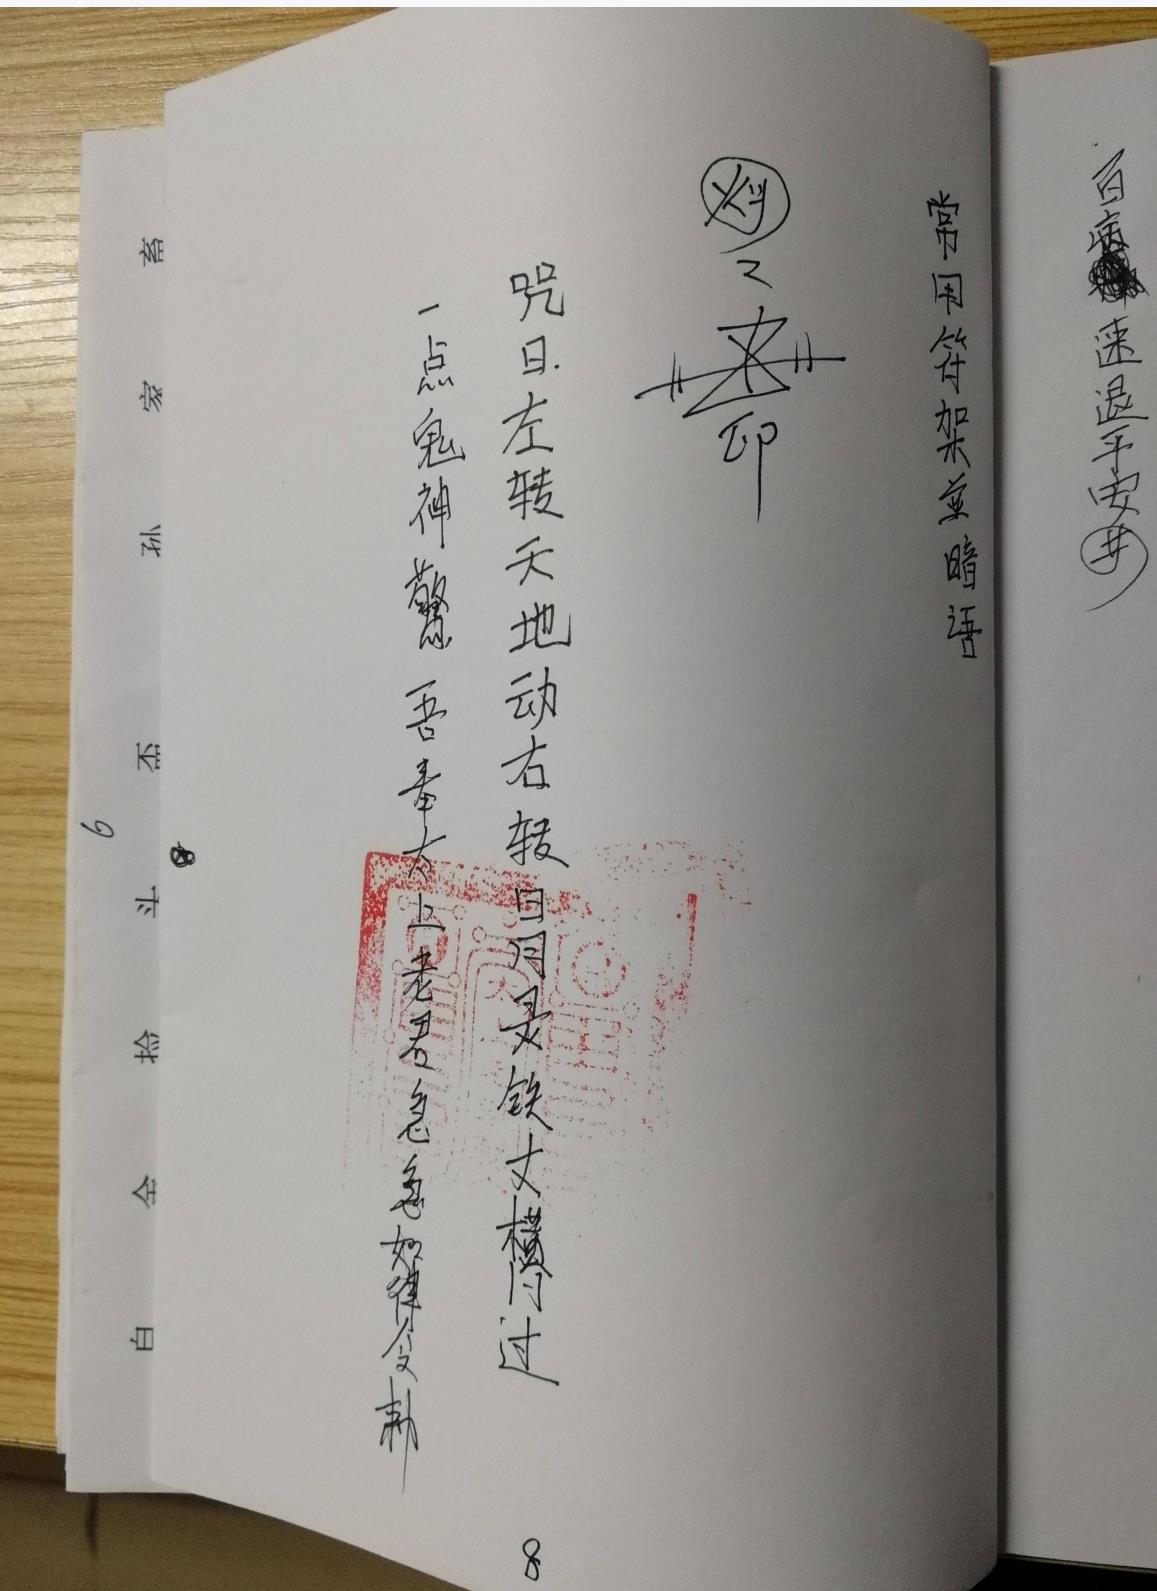 百病速退平安井
常用符架並暗语
印
咒曰左转天地动右转日月灵铁丈横门过
一点鬼神驚吾奉太上老君急急如律令敕
8
8
畜
家
孙
丕
斗
捡
全
白
6